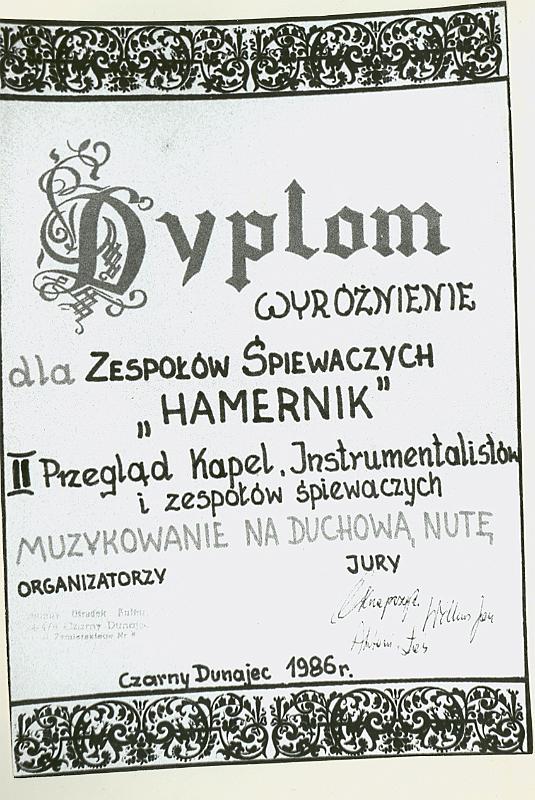 Dyplom
WYRÓŻNIENIE
dla ZESPOŁÓW ŚPIEWACZYCH
„HAMERNIK”
II Przegląd Kapel, Instrumentalistów
i zespołów śpiewaczych
MUZYKOWANIE NA DUCHOWĄ NUTĘ
ORGANIZATORZY
JURY
Ośrodek
Czarny Dunajec
Czarny Dunajec 1986r.